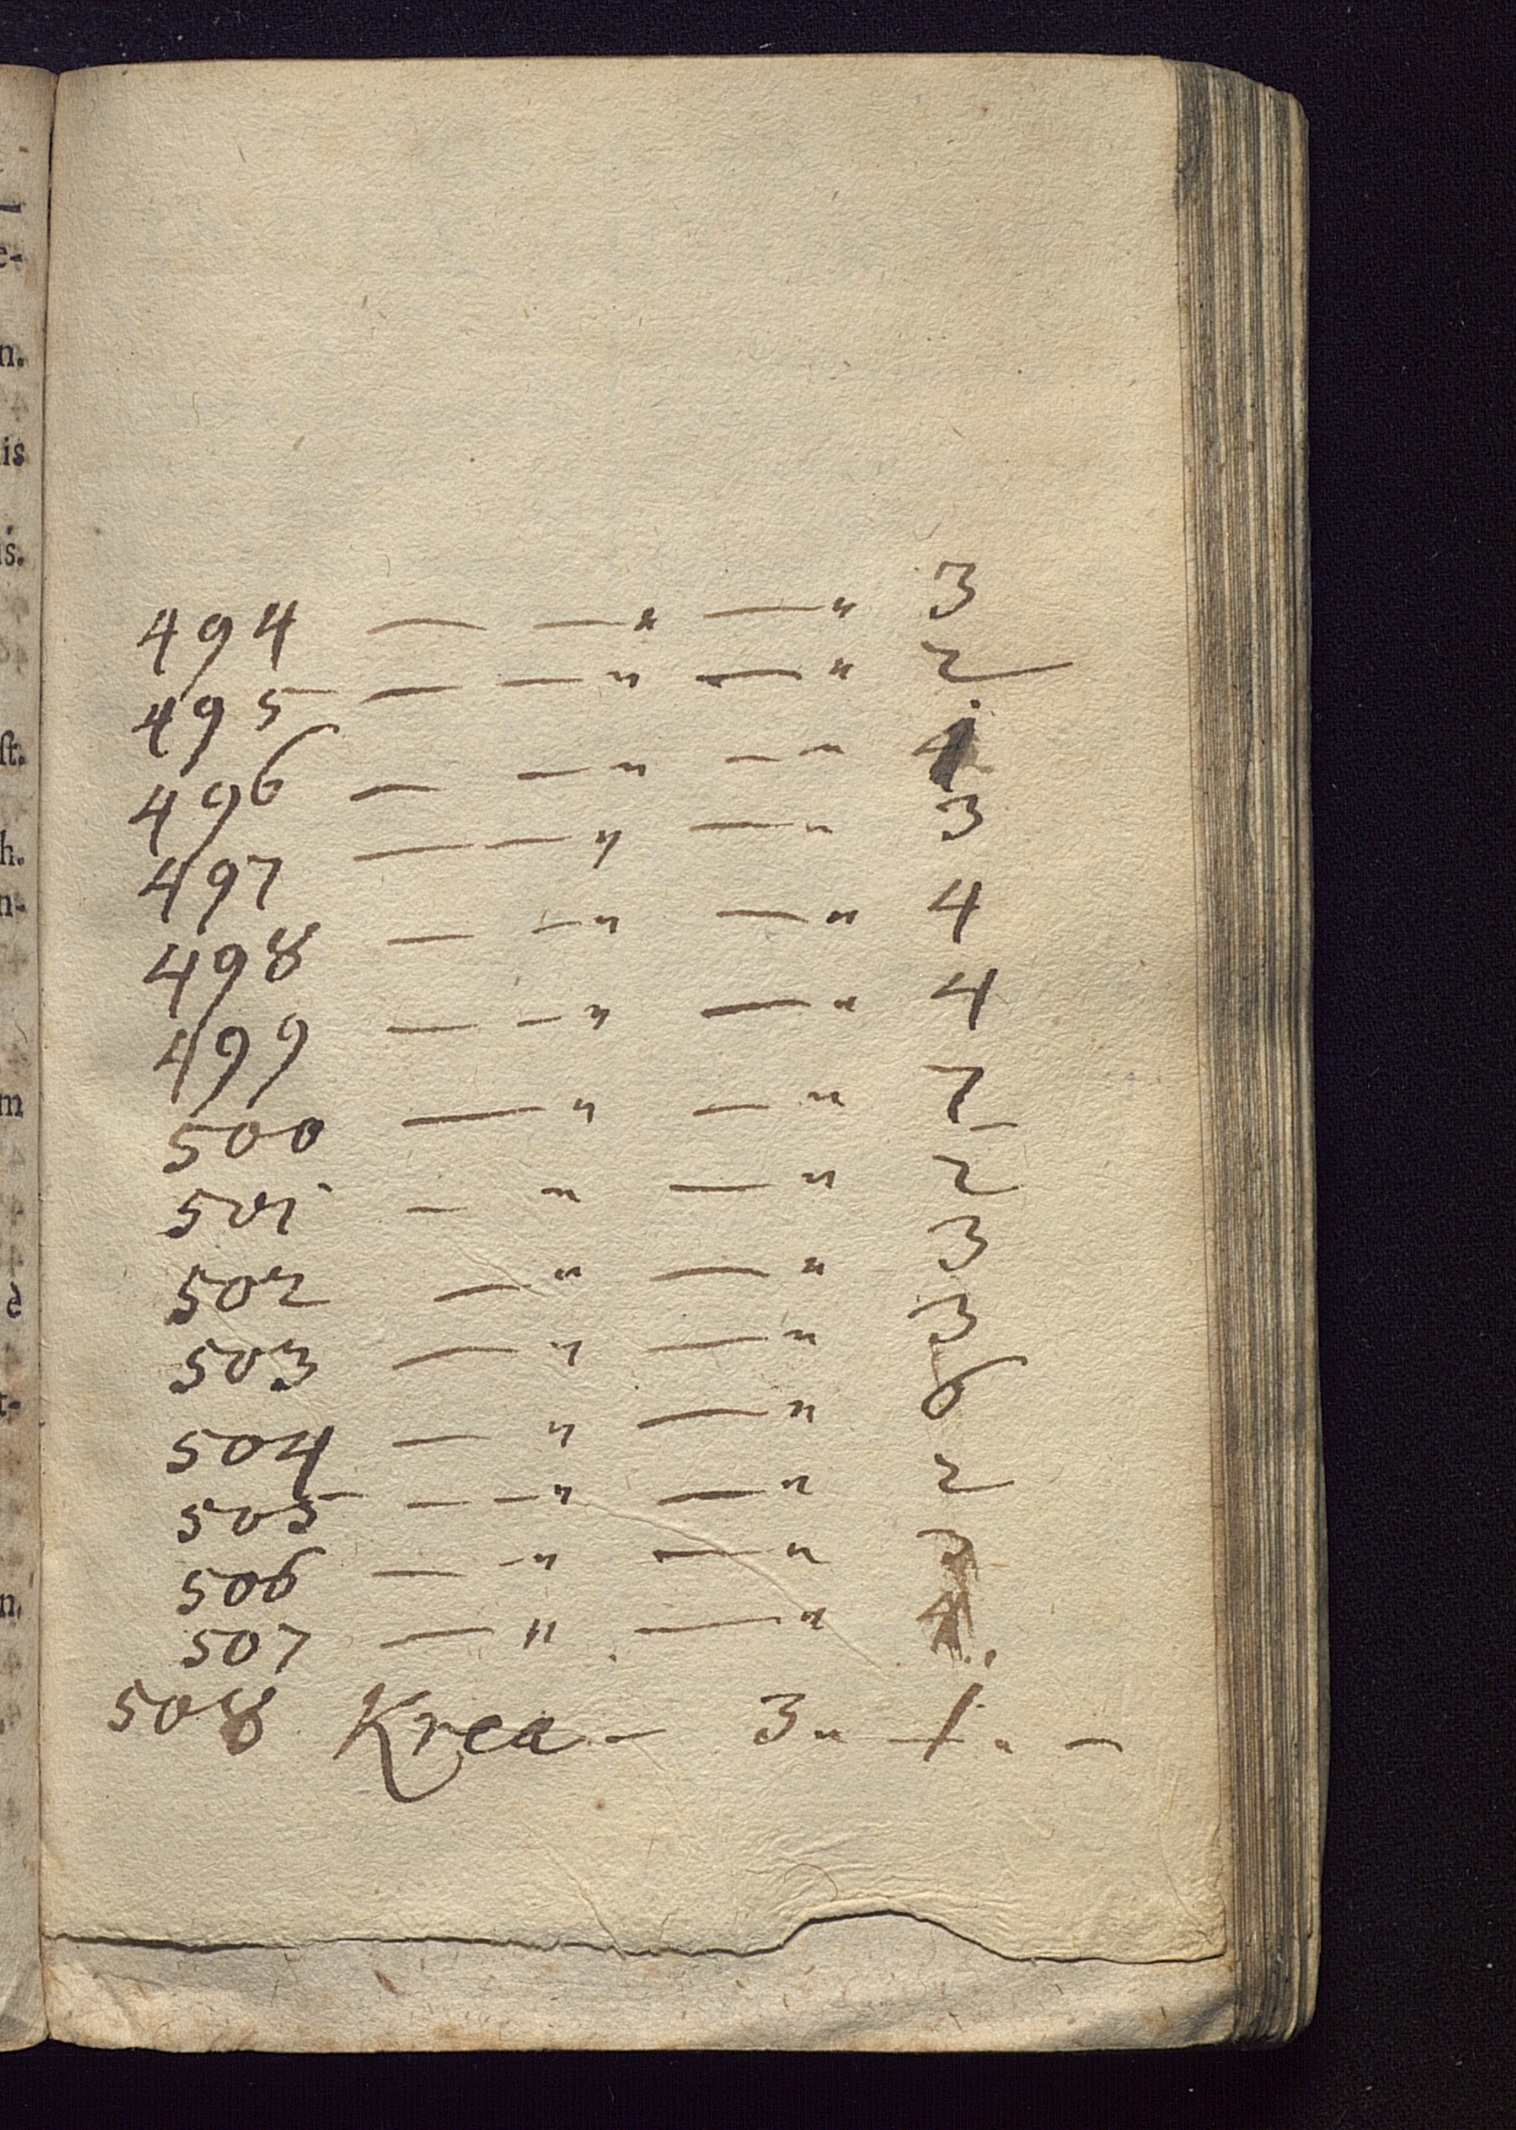 494 — — " — " 3
495 — — " — " 2
496 — — " — "
497 — — " — " 3
498 — — " — " 4
499 — — " — " 4
500 — " — " 7
501 — " — " 2
502 — " — " 3
503 — " — " 3
504 — " — " 6
505 — — " — " 2
506 — — " — "
507 — " — "
508 Krea — 3 " — 1 " —
e-
n.
is
is.
st.
h.
n-
m
è
t-
n.